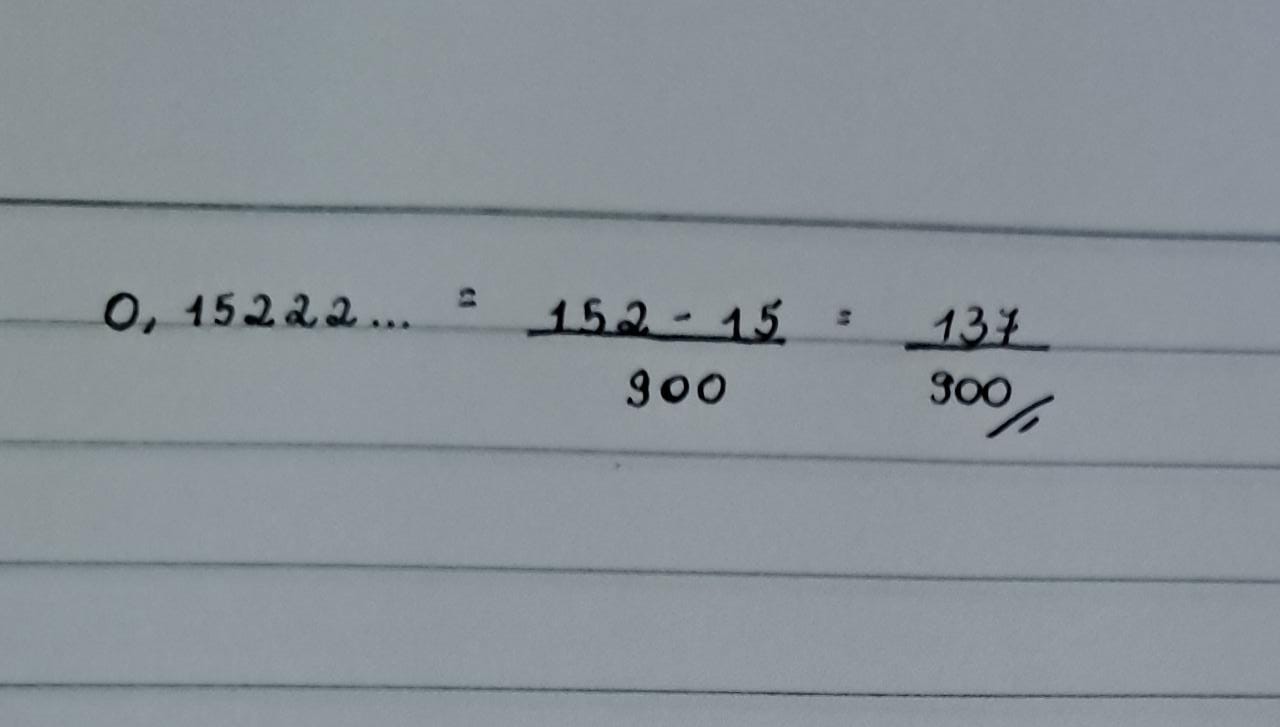 0,15222... = 152 - 15 / 900 = 137 / 900 //